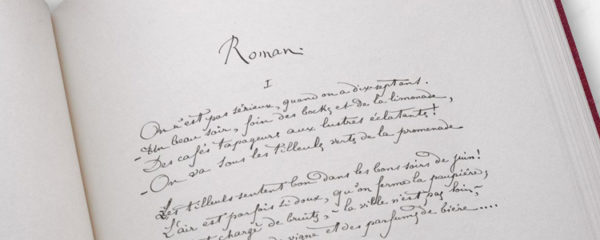 Roman.
I
On n'est pas sérieux, quand on a dix-sept ans.
- Un beau soir, foin des bocks et de la limonade,
Des cafés tapageurs aux lustres éclatants !
- On va sous les tilleuls verts de la promenade
Les tilleuls sentent bon dans les bons soirs de juin !
L'air est parfois si doux, qu'on ferme la paupière ;
chargé de bruits, - la ville n'est pas loin, -
vigne et des parfums de bière ....